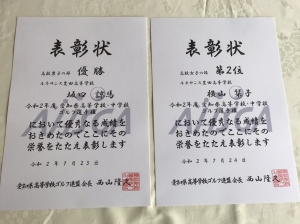 表彰状
高校男子の部 優勝
ルネサンス豊田高等学校
坂口
令和2年度 愛知県高等学校・中学校
ゴルフ選手権
において優秀なる成績を
おさめたのでここにその
栄誉をたたえ表彰します
令和2年7月23日
愛知県高等学校ゴルフ連盟会長 西山隆久
表彰状
高校女子の部 第2位
ルネサンス豊田高等学校
横山
令和2年度 愛知県高等学校・中学校
ゴルフ選手権
において優秀なる成績を
おさめたのでここにその
栄誉をたたえ表彰します
令和2年7月24日
愛知県高等学校ゴルフ連盟会長 西山隆久